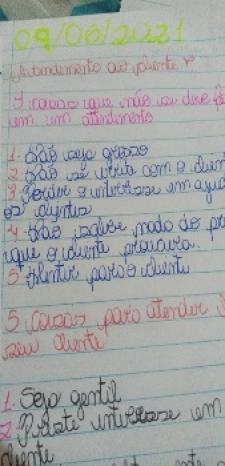 09/06/2021
Atendimento ao cliente
5 coisas que não se deve fa
em um atendimento
1- Não seja grosso
2 Não se irrita com o clien
3 Perder o interesse em aju
os clientes
4- Não saber nada do pr
que o cliente procura.
5- Mentir para o cliente
5 Coisas para atender
seu cliente
1. Seja gentil
2. interesse em
cliente